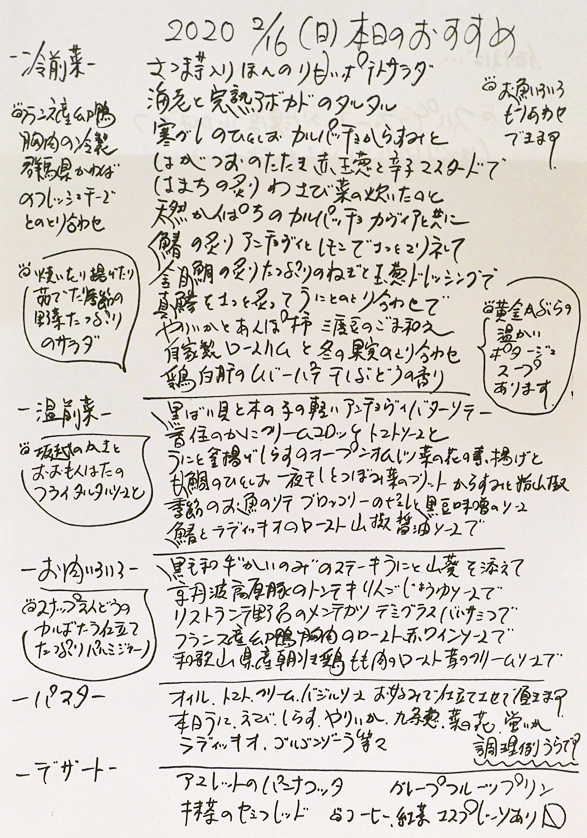 2020 2/16 (日) 本日のおすすめ
-冷前菜-
さつま芋入りほんのり甘いポテトサラダ
海老と完熟アボカドのタルタル
寒ざらしのひとしお カルパッチョからすみと
はがつおのたたき 赤玉葱と辛子マスタードで
はまちの炙り わさび菜の炊いたのと
天然かんぱちのカルパッチョ カヴィアと共に
鰆の炙り アンチョヴィとレモンでさっとマリネして
金目鯛の炙り たっぷりのねぎと玉葱ドレッシングで
真鯵をさっと炙って うにとのとり合わせで
やりいかとあんぽ柿 三度豆のごま和え
自家製ロースハムと冬の果実のとり合わせ
鶏白肝のレバーパテ 干しぶどうの香り
フランス産鴨
胸肉の冷製
群馬県かわば
のフレッシュチーズ
とのとり合わせ
焼いたり揚げたり
茹でた季節の
野菜たっぷり
のサラダ
お魚いろいろ
もりあわせ
できます!
黄金かぶらの
温かい
ポタージュ
スープ
あります
-温前菜-
黒ばい貝と木の子の軽いアンチョヴィバターソテー
香住のかにクリームコロッケ トマトソースと
うにと釜揚げしらすのオープンオムレツ 菜の花の素揚げと
甘鯛のひとしお一夜干しとつぼみ菜のリゾット からすみと粉山椒
季節のお魚のソテー ブロッコリーのピュレと黒豆味噌のソース
鰆とラディッキオのロースト 山椒醤油ソースで
坂越のかきと
おおもんはたの
フライ タルタルソースと
-お肉いろいろ-
黒毛和牛かいのみのステーキ うにと山葵を添えて
京丹波高原豚のトンテキ りんごじょうゆソースで
リストランテ野呂のメンチカツ デミグラスバルサミコで
フランス産鴨胸肉のロースト 赤ワインソースで
和歌山県産朝引き鶏もも肉のロースト 茸のクリームソースで
スナップえんどうの
カルボナーラ仕立て
たっぷりパルミジャーノ
-パスタ-
オイル、トマト、クリーム、バジルソース お好みで仕立てさせて頂きます!
本日うに、えび、しらす、やりいか、九条葱、菜の花、蛍いか
ラディッキオ、ゴルゴンゾーラ等々
調理例うらです
-デザート-
アマレットのパンナコッタ
グレープフルーツプリン
抹茶のセミフレッド
コーヒー、紅茶、エスプレッソあり